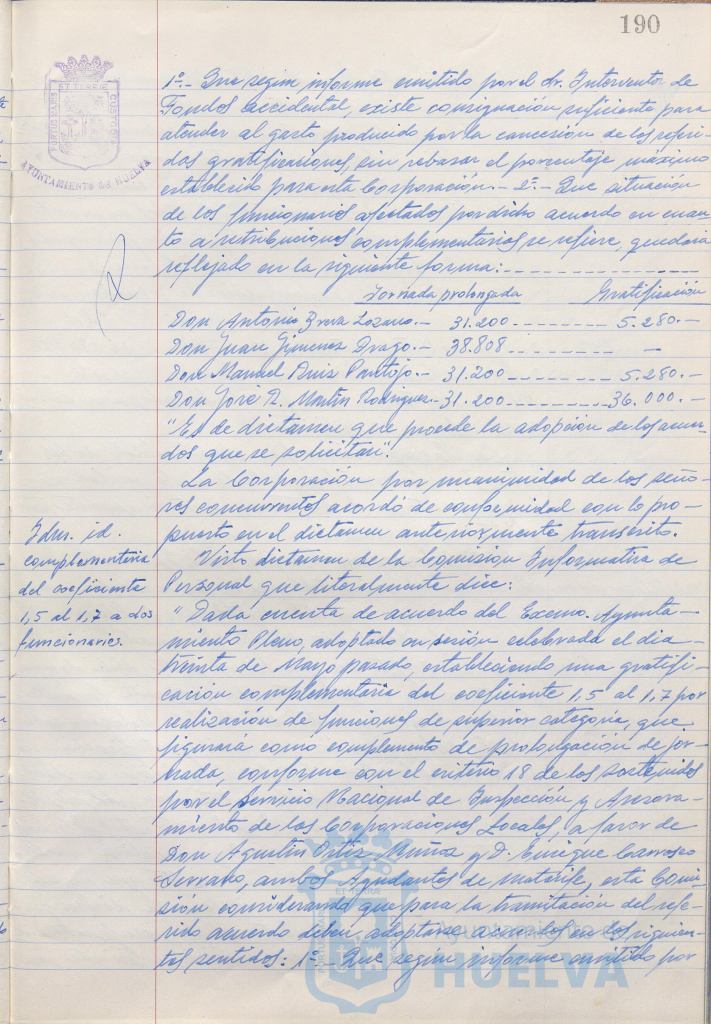 190
AYUNTAMIENTO DE HUELVA
1º.- Que según informe emitido por el Sr. Interventor de
Fondos accidental, existe consignación suficiente para
atender al gasto producido por la concesión de los referi-
dos gratificaciones, sin rebasar el porcentaje máximo
establecido para esta Corporación.- 2º.- Que situación
de los funcionarios afectados por dicho acuerdo en cuan-
to a retribuciones complementarias se refiere, quedaría
reflejado en la siguiente forma:-
Jornada prolongada Gratificación
Don Antonio Lozano.- 31.200 5.280.-
Don Juan Jimenez 38.808 -
Don Manuel Ruiz Pantojo.- 31.200 5.280.-
Don José R. Martín Rodriguez.- 31.200 36.000.-
"Es de dictamen que procede la adopción de los acuer-
dos que se solicitan".
La Corporación por unanimidad de los seño-
res concurrentes acordó de conformidad con lo pro-
puesto en el dictamen anteriormente transcrito.
Idm. id.
complementaria
del coeficiente
1,5 al 1,7 a dos
funcionarios.
Visto dictamen de la Comisión Informativa de
Personal que literalmente dice:
"Dada cuenta de acuerdo del Excmo. Ayunta-
miento Pleno, adoptado en sesión celebrada el día
treinta de Mayo pasado, estableciendo una gratifi-
cación complementaria del coeficiente 1,5 al 1,7 por
realización de funciones de superior categoría, que
figurará como complemento de prolongación de jor-
nada, conforme con el criterio 18 de los sostenidos
por el Servicio Nacional de Inspección y Asesora-
miento de las Corporaciones Locales, a favor de
Don Agustín Ortiz Muñoz y D. Enrique Carrasco
Serrano, ambos Ayudantes de matarife, esta Comi-
sión considerando que para la tramitación del refe-
rido acuerdo deben adoptarse acuerdos en los siguien-
tes sentidos: 1º.- Que según informe emitido por
Ayuntamiento de
HUELVA